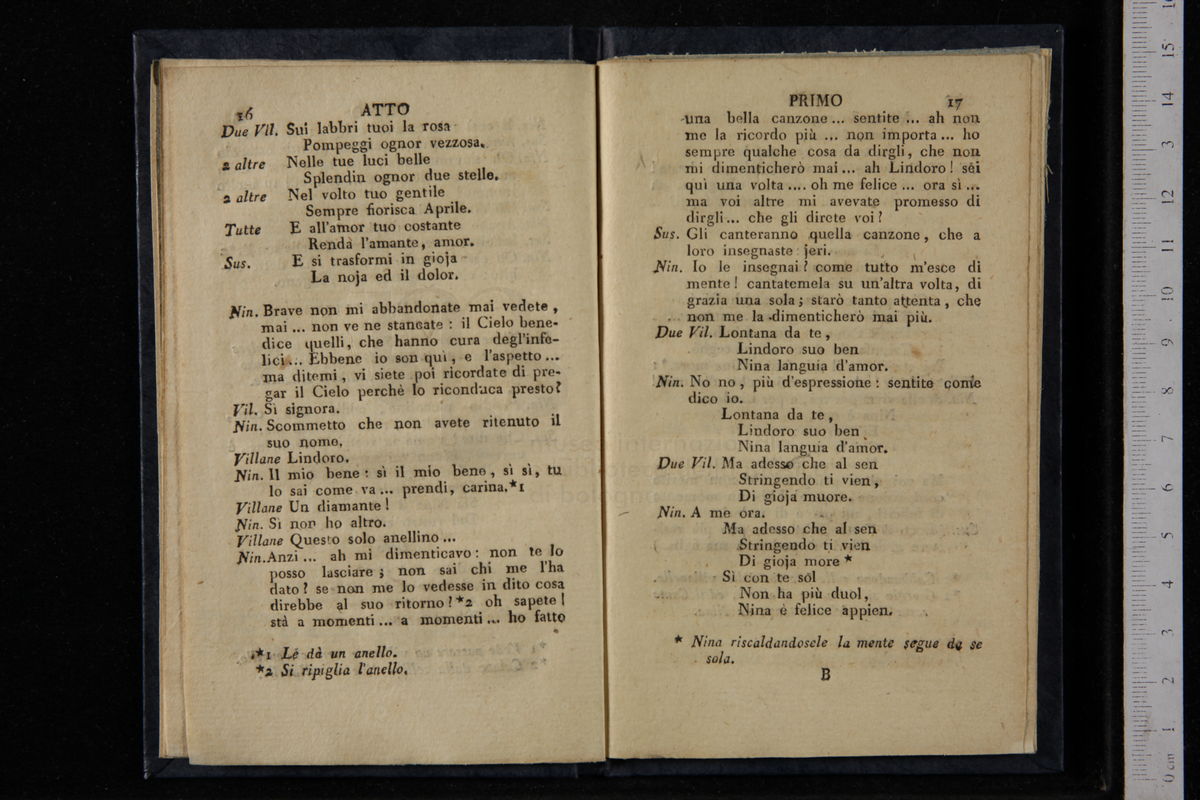 16 ATTO
Due Vil. Sui labbri tuoi la rosa
Pompeggi ognor vezzosa.
2 altre Nelle tue luci belle
Splendin ognor due stelle.
2 altre Nel volto tuo gentile
Sempre fiorisca Aprile.
Tutte E all'amor tuo costante
Renda l'amante, amor.
Sus. E si trasformi in gioja
La noja ed il dolor.
Nin. Brave non mi abbandonate mai vedete,
mai ... non ve ne stancate : il Cielo bene-
dice quelli, che hanno cura degl'infe-
lici ... Ebbene io son quì, e l'aspetto ...
ma ditemi, vi siete poi ricordate di pre-
gar il Cielo perchè lo riconduca presto?
Vil. Sì signora.
Nin. Scommetto che non avete ritenuto il
suo nome.
Villane Lindoro.
Nin. Il mio bene : sì il mio bene, sì sì, tu
lo sai come va ... prendi, carina.*1
Villane Un diamante!
Nin. Sì non ho altro.
Villane Questo solo anellino ...
Nin. Anzi ... ah mi dimenticavo : non te lo
posso lasciare; non sai chi me l'ha
dato? se non me lo vedesse in dito cosa
direbbe al suo ritorno?*2 oh sapete!
stà a momenti ... a momenti ... ho fatto
*1 Le dà un anello.
*2 Si ripiglia l'anello.
PRIMO 17
una bella canzone ... sentite ... ah non
me la ricordo più ... non importa ... ho
sempre qualche cosa da dirgli, che non
mi dimenticherò mai ... ah Lindoro! sei
quì una volta .... oh me felice ... ora sì ...
ma voi altre mi avevate promesso di
dirgli ... che gli direte voi?
Sus. Gli canteranno quella canzone, che a
loro insegnaste jeri.
Nin. Io le insegnai? come tutto m'esce di
mente! cantatemela su un'altra volta, di
grazia una sola; starò tanto attenta, che
non me la dimenticherò mai più.
Due Vil. Lontana da te,
Lindoro suo ben
Nina languia d'amor.
Nin. No no, più d'espressione : sentite come
dico io.
Lontana da te,
Lindoro suo ben
Nina languia d'amor.
Due Vil. Ma adesso che al sen
Stringendo ti vien,
Di gioja muore.
Nin. A me ora.
Ma adesso che al sen
Stringendo ti vien
Di gioja more *
Sì con te sol
Non ha più duol,
Nina è felice appien.
* Nina riscaldandosele la mente segue da se
sola.
B